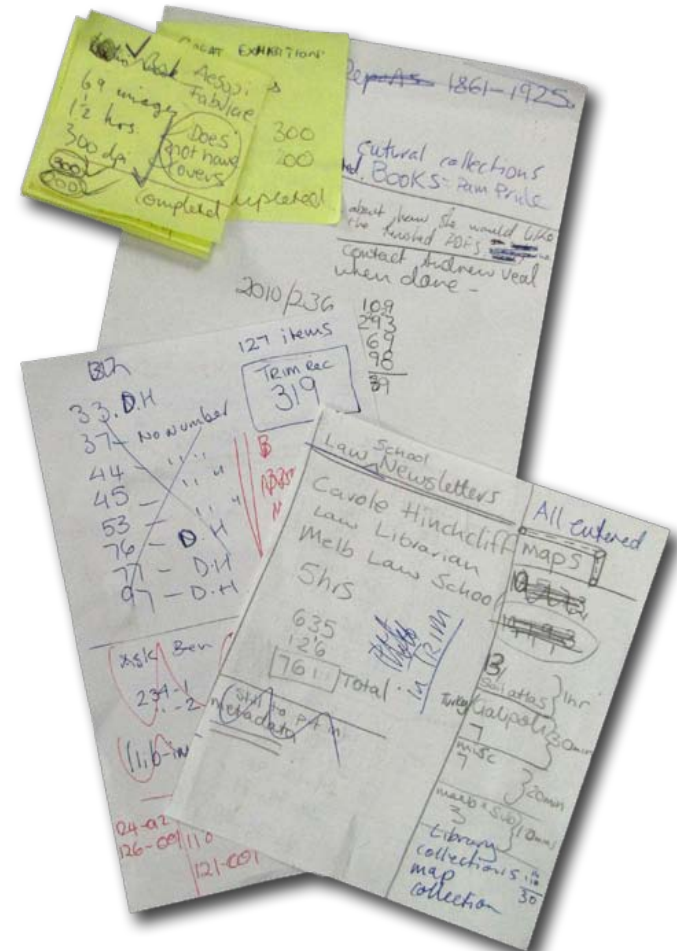 Book Aesopi
Fabulae
69 images
12 hrs
300 dpi
Does
not have
covers
300
200
completed
EXHIBITIONS
300
200
completed
Reports 1861-1925
cultural collections
Books - Pam Pryde
about how she would like
the PDFs
contact Andrew Veal
when done -
2010/236
109
293
69
98
127 items
TRIM Rec
319
33. D.H
37 - No Number
44 - " "
45 - " "
53 - " "
76 - D.H
77 - D.H
97 - D.H
B
ask Ben
234-1
-2
04-02
126-001
121-001
Law School Newsletters
Carole Hinchcliff
Law Librarian
Melb Law School
5hrs
635
126
761 Total
in TRIM
Still to put in
metadata
All entered
maps
13
Soil atlas
1hr
Turkey/Galipoli
7
30min
misc
7
20min
melb & sub
3
10mins
Library
collections
map
collection
30